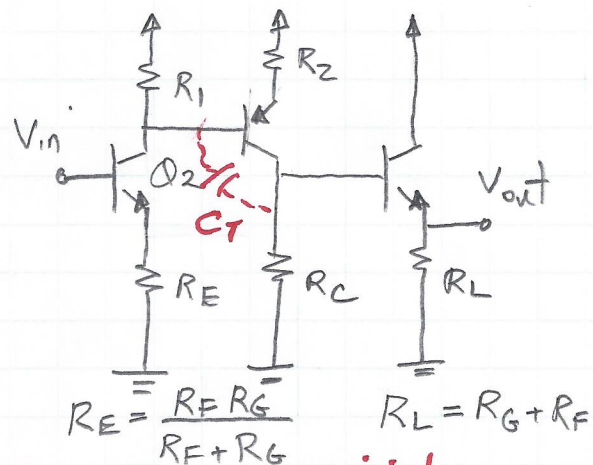 R2
R1
Vin
Q2
C1
Vout
RE
RC
RL
RE = RF RG / RF + RG
RL = RG + RF